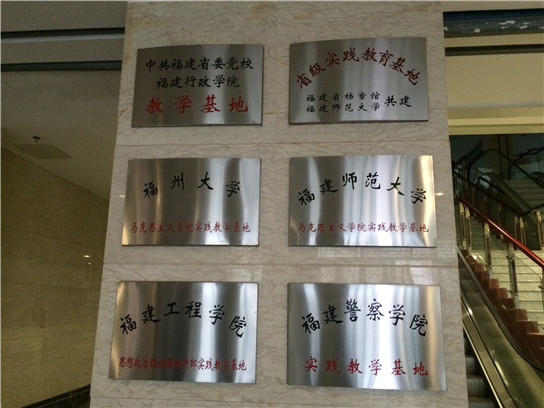 中共福建省委党校
福建行政学院
教学基地
省级实践教育基地
福建省档案馆
福建师范大学 共建
福州大学
马克思主义学院实践教学基地
福建师范大学
马克思主义学院实践教学基地
福建工程学院
思想政治理论课教研部实践教学基地
福建警察学院
实践教学基地